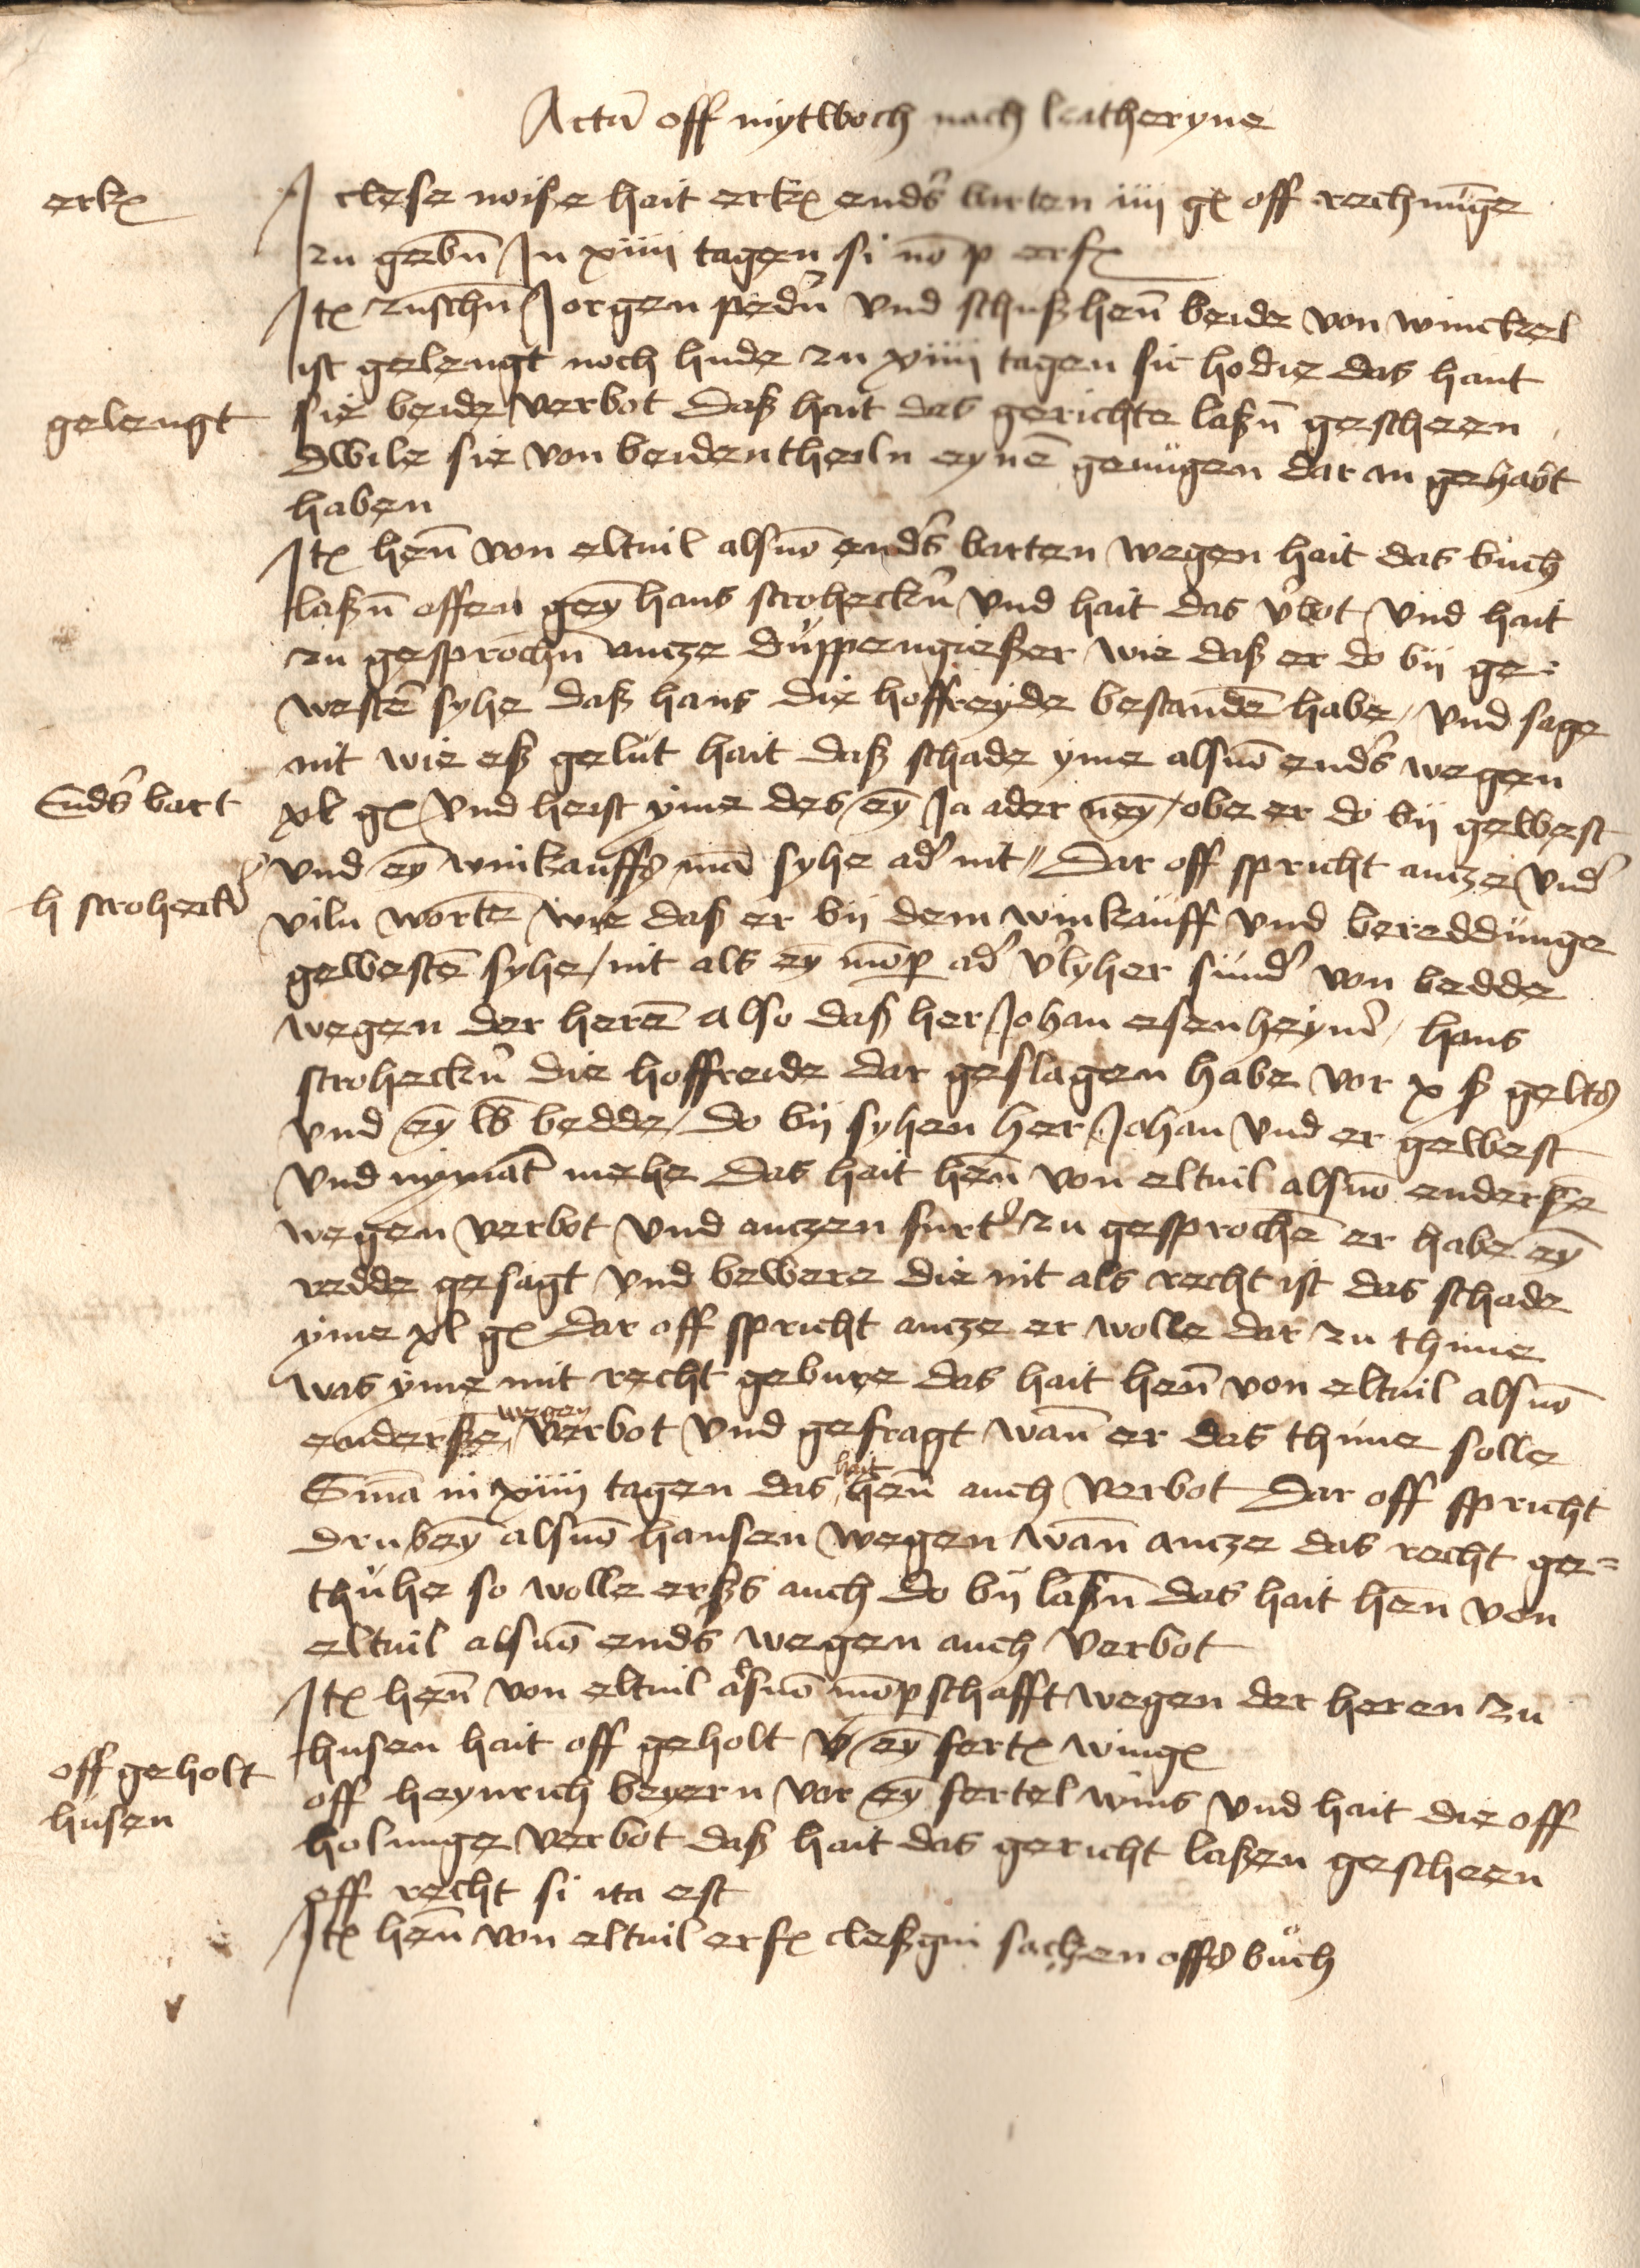 Acta off mytwoch nach katheryne
erkꝫ
J clese noiße hait erkꝫ endrs barten iiii gꝫ off rechnu̅ge
zu gebn̅ Jn xiiii tagen si no̅ p erfꝫ
Jtꝫ zuschn̅ Jorgen pedn̅ vnd schußhen̅ beide von winckel
ist gelengt noch hude zu xiiii tagen sic hodie das hant
gelengt
sie beide verbot daß hait das gerichte laßn̅ gescheen
dwile sie von beidentheiln eyne̅ genugen dar an gehabt
haben
Jtꝫ hen̅ von eltuil alsuo̅ endrs barten wegen hait das buch
laßn̅ offen gey̅ hans stroheckn̅ vnd hait das v̓bot vnd hait
zu gesprochn̅ antze duppengießer wie daß er do bij ge-
weste̅ syhe daß hans die hoffreyde bestande̅ habe / vnd sage
nit wie eß gelut hait daß schade yme alsuo̅ endrs wegen
Endrs bart
xl gꝫ vnd heist yme des ey̅ Ja ader ney̅ / obe er do bij gewest
vnd ey̅ winkauffs ma̅ syhe ad̓ nit // Dar off spricht antze vnd̓
h strohecken̅
viln worte̅ wie daß er bij dem winkauff vnd bereddunge
geweste̅ syhe / nit als ey̅ mo̅p ad̓ v̓lyher sund̓ von bedde
wegen der here̅ also daß her Johan esenheym̓ / hans
stroheckn̅ die hoffreide dar geslagen habe vor x ß gelts
vnd ey̅ lb bedde / do bij syhen her Johan vnd er gewest
vnd nymat̅ mehe das hait hen̅ von eltuil alsuo̅ enderße
wegen verbot vnd antzen furt̓ zu gesproche̅ er habe ey̅
redde gesagt vnd bewere die nit als recht ist das schade
yme xl gꝫ dar off spricht antze er wolle dar zu thune
was yme mit recht gebure das hait hen̅ von eltuil alsuo̅
enderße wegen verbot vnd gefragt wan̅ er das thune solle
S̅nia in xiiii tagen das hait hen̅ auch verbot Dar off spricht
drubey̅ alsuo̅ hansen wegen wan̅ antze das recht ge=
thuhe so wolle erßs auch do bij laßn̅ das hait hen̅ von
eltuil alsuo̅ endrs wegen auch verbot
Jtꝫ hen̅ von eltuil alsuo̅ mo̅pschafft wegen der heren zu
husen hait off geholt ey̅ fertꝫ wingꝫ
off geholt
husen
off heynrich beyern vor ey̅ fertel wins vnd hait die off
holunge verbot daß hait das gericht laßen gescheen
off recht si ita est
Jtꝫ hen̅ von eltuil erfꝫ cleßgin sachen offs buch